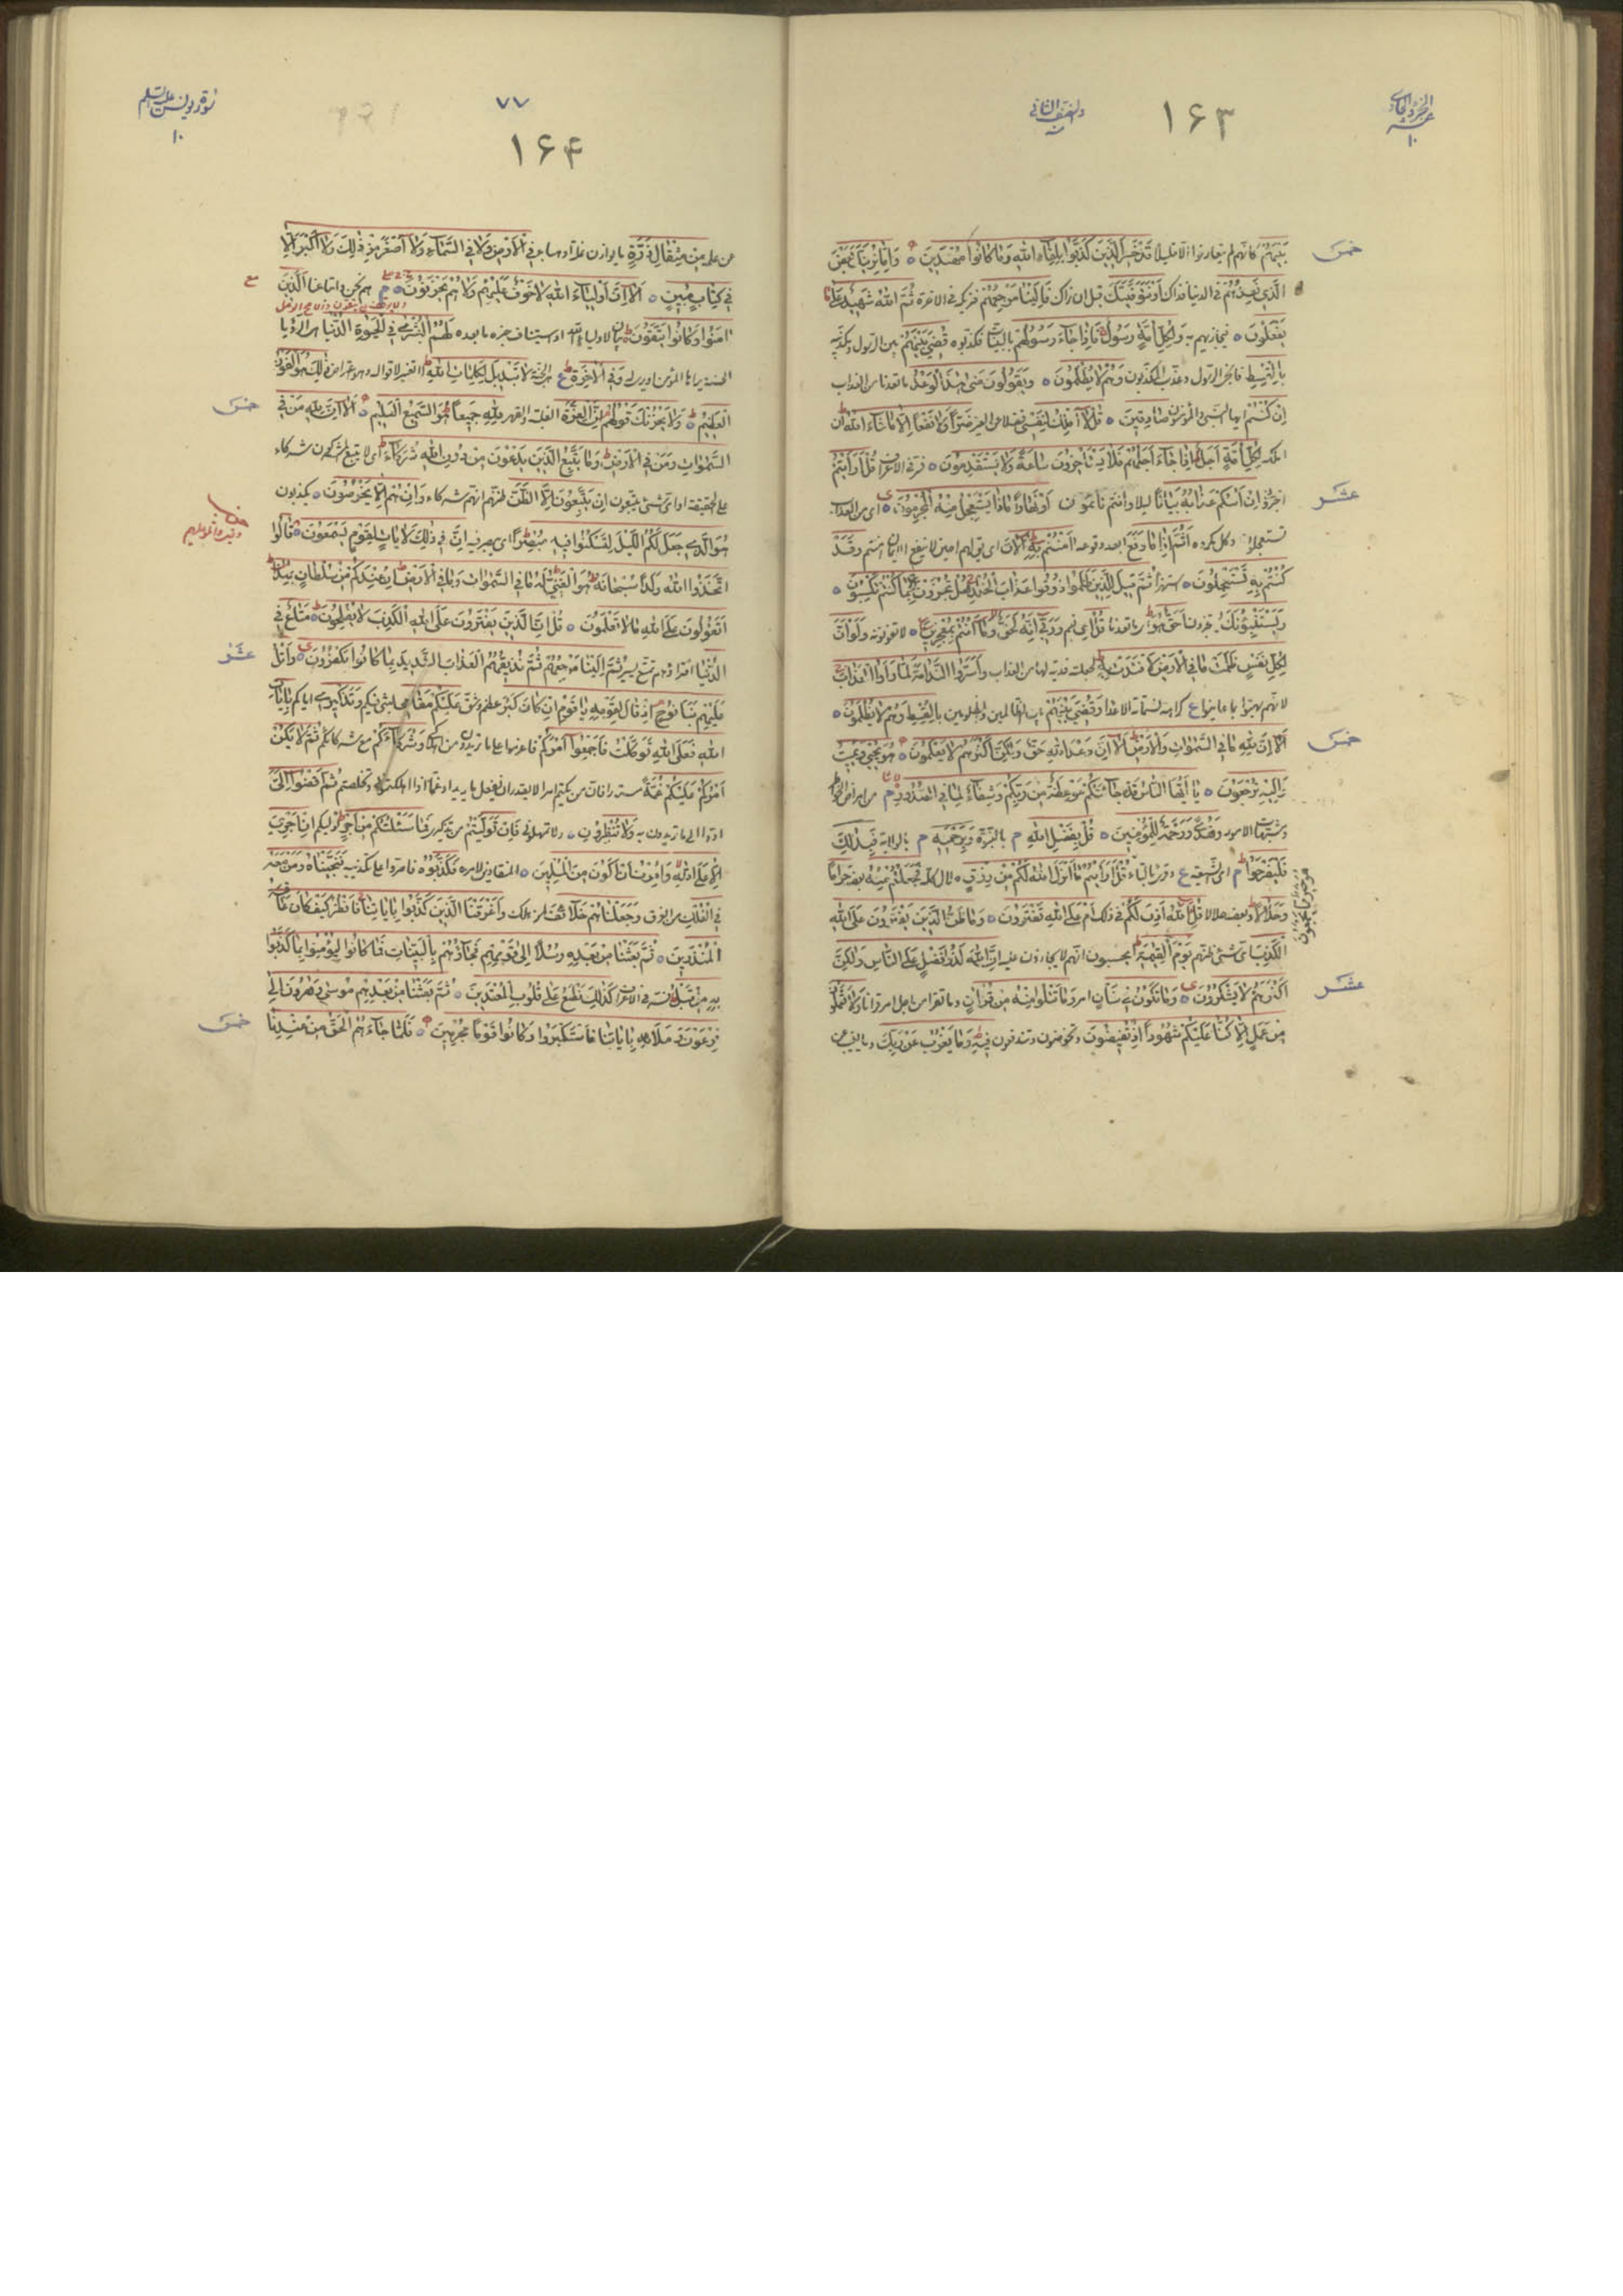 ١۶٣
بَيْنَهُمْ كانهم لم يتعارفوا الا قليلا قَدْ خَسِرَ الَّذِينَ كَذَّبُوا بِلِقَاءِ اللهِ وَمَا كَانُوا مُهْتَدِينَ وَإِمَّا نُرِيَنَّكَ بَعْضَ
خمس
الَّذِي نَعِدُهُمْ فى الدنيا فذاك أَوْ نَتَوَفَّيَنَّكَ قبل ان فَإِلَيْنَا مَرْجِعُهُمْ فى الاخرة ثُمَّ اللهُ شَهِيدٌ عَلَى مَا
يَفْعَلُونَ فيجازيهم به وَلِكُلِّ أُمَّةٍ رَسُولٌ فَإِذَا جَاءَ رَسُولُهُمْ بالبينات فكذبوه قُضِيَ بَيْنَهُمْ بين الرسول ومكذبيه
بِالْقِسْطِ فانجى الرسول وعذب المكذبون وَهُمْ لَا يُظْلَمُونَ وَيَقُولُونَ مَتَى هَذَا الْوَعْدُ ما تعدنا من العذاب
إِنْ كُنْتُمْ ايها النبى والمؤمنون صَادِقِينَ قُلْ لَا أَمْلِكُ لِنَفْسِي فضلا عن الغير ضَرًّا وَلَا نَفْعًا إِلَّا مَا شَاءَ اللهُ ان
املكه لِكُلِّ أُمَّةٍ أَجَلٌ إِذَا جَاءَ أَجَلُهُمْ فَلَا يَسْتَأْخِرُونَ سَاعَةً وَلَا يَسْتَقْدِمُونَ فى الاعراف قُلْ أَرَأَيْتُمْ
اخبرونى إِنْ أَتَاكُمْ عَذَابُهُ بَيَاتًا ليلا وانتم نائمون أَوْ نَهَارًا مَاذَا يَسْتَعْجِلُ مِنْهُ الْمُجْرِمُونَ اى من العذاب
عشر
تستعجلونه وكل مكروه أَثُمَّ إِذَا مَا وَقَعَ ابعد وقوعه آمَنْتُمْ بِهِ آلْآنَ وَقَدْ
كُنْتُمْ بِهِ تَسْتَعْجِلُونَ استهزاء ثُمَّ قِيلَ لِلَّذِينَ ظَلَمُوا ذُوقُوا عَذَابَ الْخُلْدِ هَلْ تُجْزَوْنَ إِلَّا بِمَا كُنْتُمْ تَكْسِبُونَ
وَيَسْتَنْبِئُونَكَ أَحَقٌّ هُوَ ما تعدنا قُلْ إِي نعم وَرَبِّي إِنَّهُ لَحَقٌّ وَمَا أَنْتُمْ بِمُعْجِزِينَ لا تفوتونه وَلَوْ أَنَّ
لِكُلِّ نَفْسٍ ظَلَمَتْ مَا فِي الْأَرْضِ لَافْتَدَتْ بِهِ لجعلته فدية لها من العذاب وَأَسَرُّوا النَّدَامَةَ لَمَّا رَأَوُا الْعَذَابَ
لانهم بهتوا بما عاينوا كراهة لشماتة الاعداء وَقُضِيَ بَيْنَهُمْ بين الظالمين والمظلومين بِالْقِسْطِ وَهُمْ لَا يُظْلَمُونَ
أَلَا إِنَّ لِلَّهِ مَا فِي السَّمَوَاتِ وَالْأَرْضِ أَلَا إِنَّ وَعْدَ اللهِ حَقٌّ وَلَكِنَّ أَكْثَرَهُمْ لَا يَعْلَمُونَ هُوَ يُحْيِي وَيُمِيتُ
خمس
وَإِلَيْهِ تُرْجَعُونَ يَا أَيُّهَا النَّاسُ قَدْ جَاءَتْكُمْ مَوْعِظَةٌ مِنْ رَبِّكُمْ وَشِفَاءٌ لِمَا فِي الصُّدُورِ م من امراض
الامور وَهُدًى وَرَحْمَةٌ لِلْمُؤْمِنِينَ قُلْ بِفَضْلِ اللهِ م بالنبوة وَبِرَحْمَتِهِ م بالولاية فَبِذَلِكَ
فَلْيَفْرَحُوا م وقرئ بالتاء قُلْ أَرَأَيْتُمْ مَا أَنْزَلَ اللهُ لَكُمْ مِنْ رِزْقٍ حلال كله فَجَعَلْتُمْ مِنْهُ بعضه حَرَامًا
وَحَلَالًا وبعضه حلالا قُلْ آللهُ أَذِنَ لَكُمْ فى ذلك أَمْ عَلَى اللهِ تَفْتَرُونَ وَمَا ظَنُّ الَّذِينَ يَفْتَرُونَ عَلَى اللهِ
الْكَذِبَ اى شئ ظنهم يَوْمَ الْقِيَمَةِ ايحسبون انهم لا يجازون عليه إِنَّ اللهَ لَذُو فَضْلٍ عَلَى النَّاسِ وَلَكِنَّ
أَكْثَرَهُمْ لَا يَشْكُرُونَ وَمَا تَكُونُ فِي شَأْنٍ امر وَمَا تَتْلُوا مِنْهُ مِنْ قُرْآنٍ وَلَا تَعْمَلُونَ
عشر
مِنْ عَمَلٍ إِلَّا كُنَّا عَلَيْكُمْ شُهُودًا إِذْ تُفِيضُونَ تخوضون وتندفعون فِيهِ وَمَا يَعْزُبُ عَنْ رَبِّكَ وما يغيب
سورة يونس عليه السلم
١٠
٧٧
١۶۴
عن علمه مِنْ مِثْقَالِ ذَرَّةٍ ما يوازن نملة او هباء فِي الْأَرْضِ وَلَا فِي السَّمَاءِ وَلَا أَصْغَرَ مِنْ ذَلِكَ وَلَا أَكْبَرَ إِلَّا
فِي كِتَابٍ مُبِينٍ أَلَا إِنَّ أَوْلِيَاءَ اللهِ لَا خَوْفٌ عَلَيْهِمْ وَلَا هُمْ يَحْزَنُونَ م هم نحن واتباعنا الَّذِينَ
آمَنُوا وَكَانُوا يَتَّقُونَ بيان لاولياء الله او استيناف خبره ما بعده لَهُمُ الْبُشْرَى فِي الْحَيَوةِ الدُّنْيَا هى الرؤيا
الحسنة يراها المؤمن وَفِي الْآخِرَةِ لَا تَبْدِيلَ لِكَلِمَاتِ اللهِ لا تغيير لاقواله وهو اعتراض ذَلِكَ هُوَ الْفَوْزُ
الْعَظِيمُ وَلَا يَحْزُنْكَ قَوْلُهُمْ إِنَّ الْعِزَّةَ الغلبة والقهر لِلَّهِ جَمِيعًا هُوَ السَّمِيعُ الْعَلِيمُ أَلَا إِنَّ لِلَّهِ مَنْ فِي
خمس
السَّمَوَاتِ وَمَنْ فِي الْأَرْضِ وَمَا يَتَّبِعُ الَّذِينَ يَدْعُونَ مِنْ دُونِ اللهِ شُرَكَاءَ اى لا يتبع المشركون شركاء
على الحقيقة او اى شئ يتبعون إِنْ يَتَّبِعُونَ إِلَّا الظَّنَّ ظنهم انهم شركاء وَإِنْ هُمْ إِلَّا يَخْرُصُونَ يكذبون
هُوَ الَّذِي جَعَلَ لَكُمُ اللَّيْلَ لِتَسْكُنُوا فِيهِ مُبْصِرًا إِنَّ فِي ذَلِكَ لَآيَاتٍ لِقَوْمٍ يَسْمَعُونَ قَالُوا
اتَّخَذَ اللهُ وَلَدًا سُبْحَانَهُ هُوَ الْغَنِيُّ لَهُ مَا فِي السَّمَوَاتِ وَمَا فِي الْأَرْضِ إِنْ عِنْدَكُمْ مِنْ سُلْطَانٍ بِهَذَا
أَتَقُولُونَ عَلَى اللهِ مَا لَا تَعْلَمُونَ قُلْ إِنَّ الَّذِينَ يَفْتَرُونَ عَلَى اللهِ الْكَذِبَ لَا يُفْلِحُونَ مَتَاعٌ فِي
الدُّنْيَا ثُمَّ إِلَيْنَا مَرْجِعُهُمْ ثُمَّ نُذِيقُهُمُ الْعَذَابَ الشَّدِيدَ بِمَا كَانُوا يَكْفُرُونَ وَاتْلُ
عشر
عَلَيْهِمْ نَبَأَ نُوحٍ إِذْ قَالَ لِقَوْمِهِ يَا قَوْمِ إِنْ كَانَ كَبُرَ عظم وشق عَلَيْكُمْ مَقَامِي وَتَذْكِيرِي اياكم بِآيَاتِ
اللهِ فَعَلَى اللهِ تَوَكَّلْتُ فَأَجْمِعُوا أَمْرَكُمْ فاعزموا على ما تريدون وَشُرَكَاءَكُمْ مع شركائكم ثُمَّ لَا يَكُنْ
أَمْرُكُمْ عَلَيْكُمْ غُمَّةً ثُمَّ اقْضُوا إِلَيَّ
ادوا الى ما تريدون به وَلَا تُنْظِرُونِ ولا تمهلونى فَإِنْ تَوَلَّيْتُمْ عن تذكيرى فَمَا سَأَلْتُكُمْ مِنْ أَجْرٍ إِنْ أَجْرِيَ
إِلَّا عَلَى اللهِ وَأُمِرْتُ أَنْ أَكُونَ مِنَ الْمُسْلِمِينَ المنقادين لامره فَكَذَّبُوهُ فاصروا على تكذيبه فَنَجَّيْنَاهُ وَمَنْ مَعَهُ
فِي الْفُلْكِ من الغرق وَجَعَلْنَاهُمْ خَلَائِفَ وَأَغْرَقْنَا الَّذِينَ كَذَّبُوا بِآيَاتِنَا فَانْظُرْ كَيْفَ كَانَ عَاقِبَةُ
الْمُنْذَرِينَ ثُمَّ بَعَثْنَا مِنْ بَعْدِهِ رُسُلًا إِلَى قَوْمِهِمْ فَجَاؤُهُمْ بِالْبَيِّنَاتِ فَمَا كَانُوا لِيُؤْمِنُوا بِمَا كَذَّبُوا
بِهِ مِنْ قَبْلُ فى الاعراف كَذَلِكَ نَطْبَعُ عَلَى قُلُوبِ الْمُعْتَدِينَ ثُمَّ بَعَثْنَا مِنْ بَعْدِهِمْ مُوسَى وَهَرُونَ إِلَى
فِرْعَوْنَ وَمَلَائِهِ بِآيَاتِنَا فَاسْتَكْبَرُوا وَكَانُوا قَوْمًا مُجْرِمِينَ فَلَمَّا جَاءَهُمُ الْحَقُّ مِنْ عِنْدِنَا
خمس